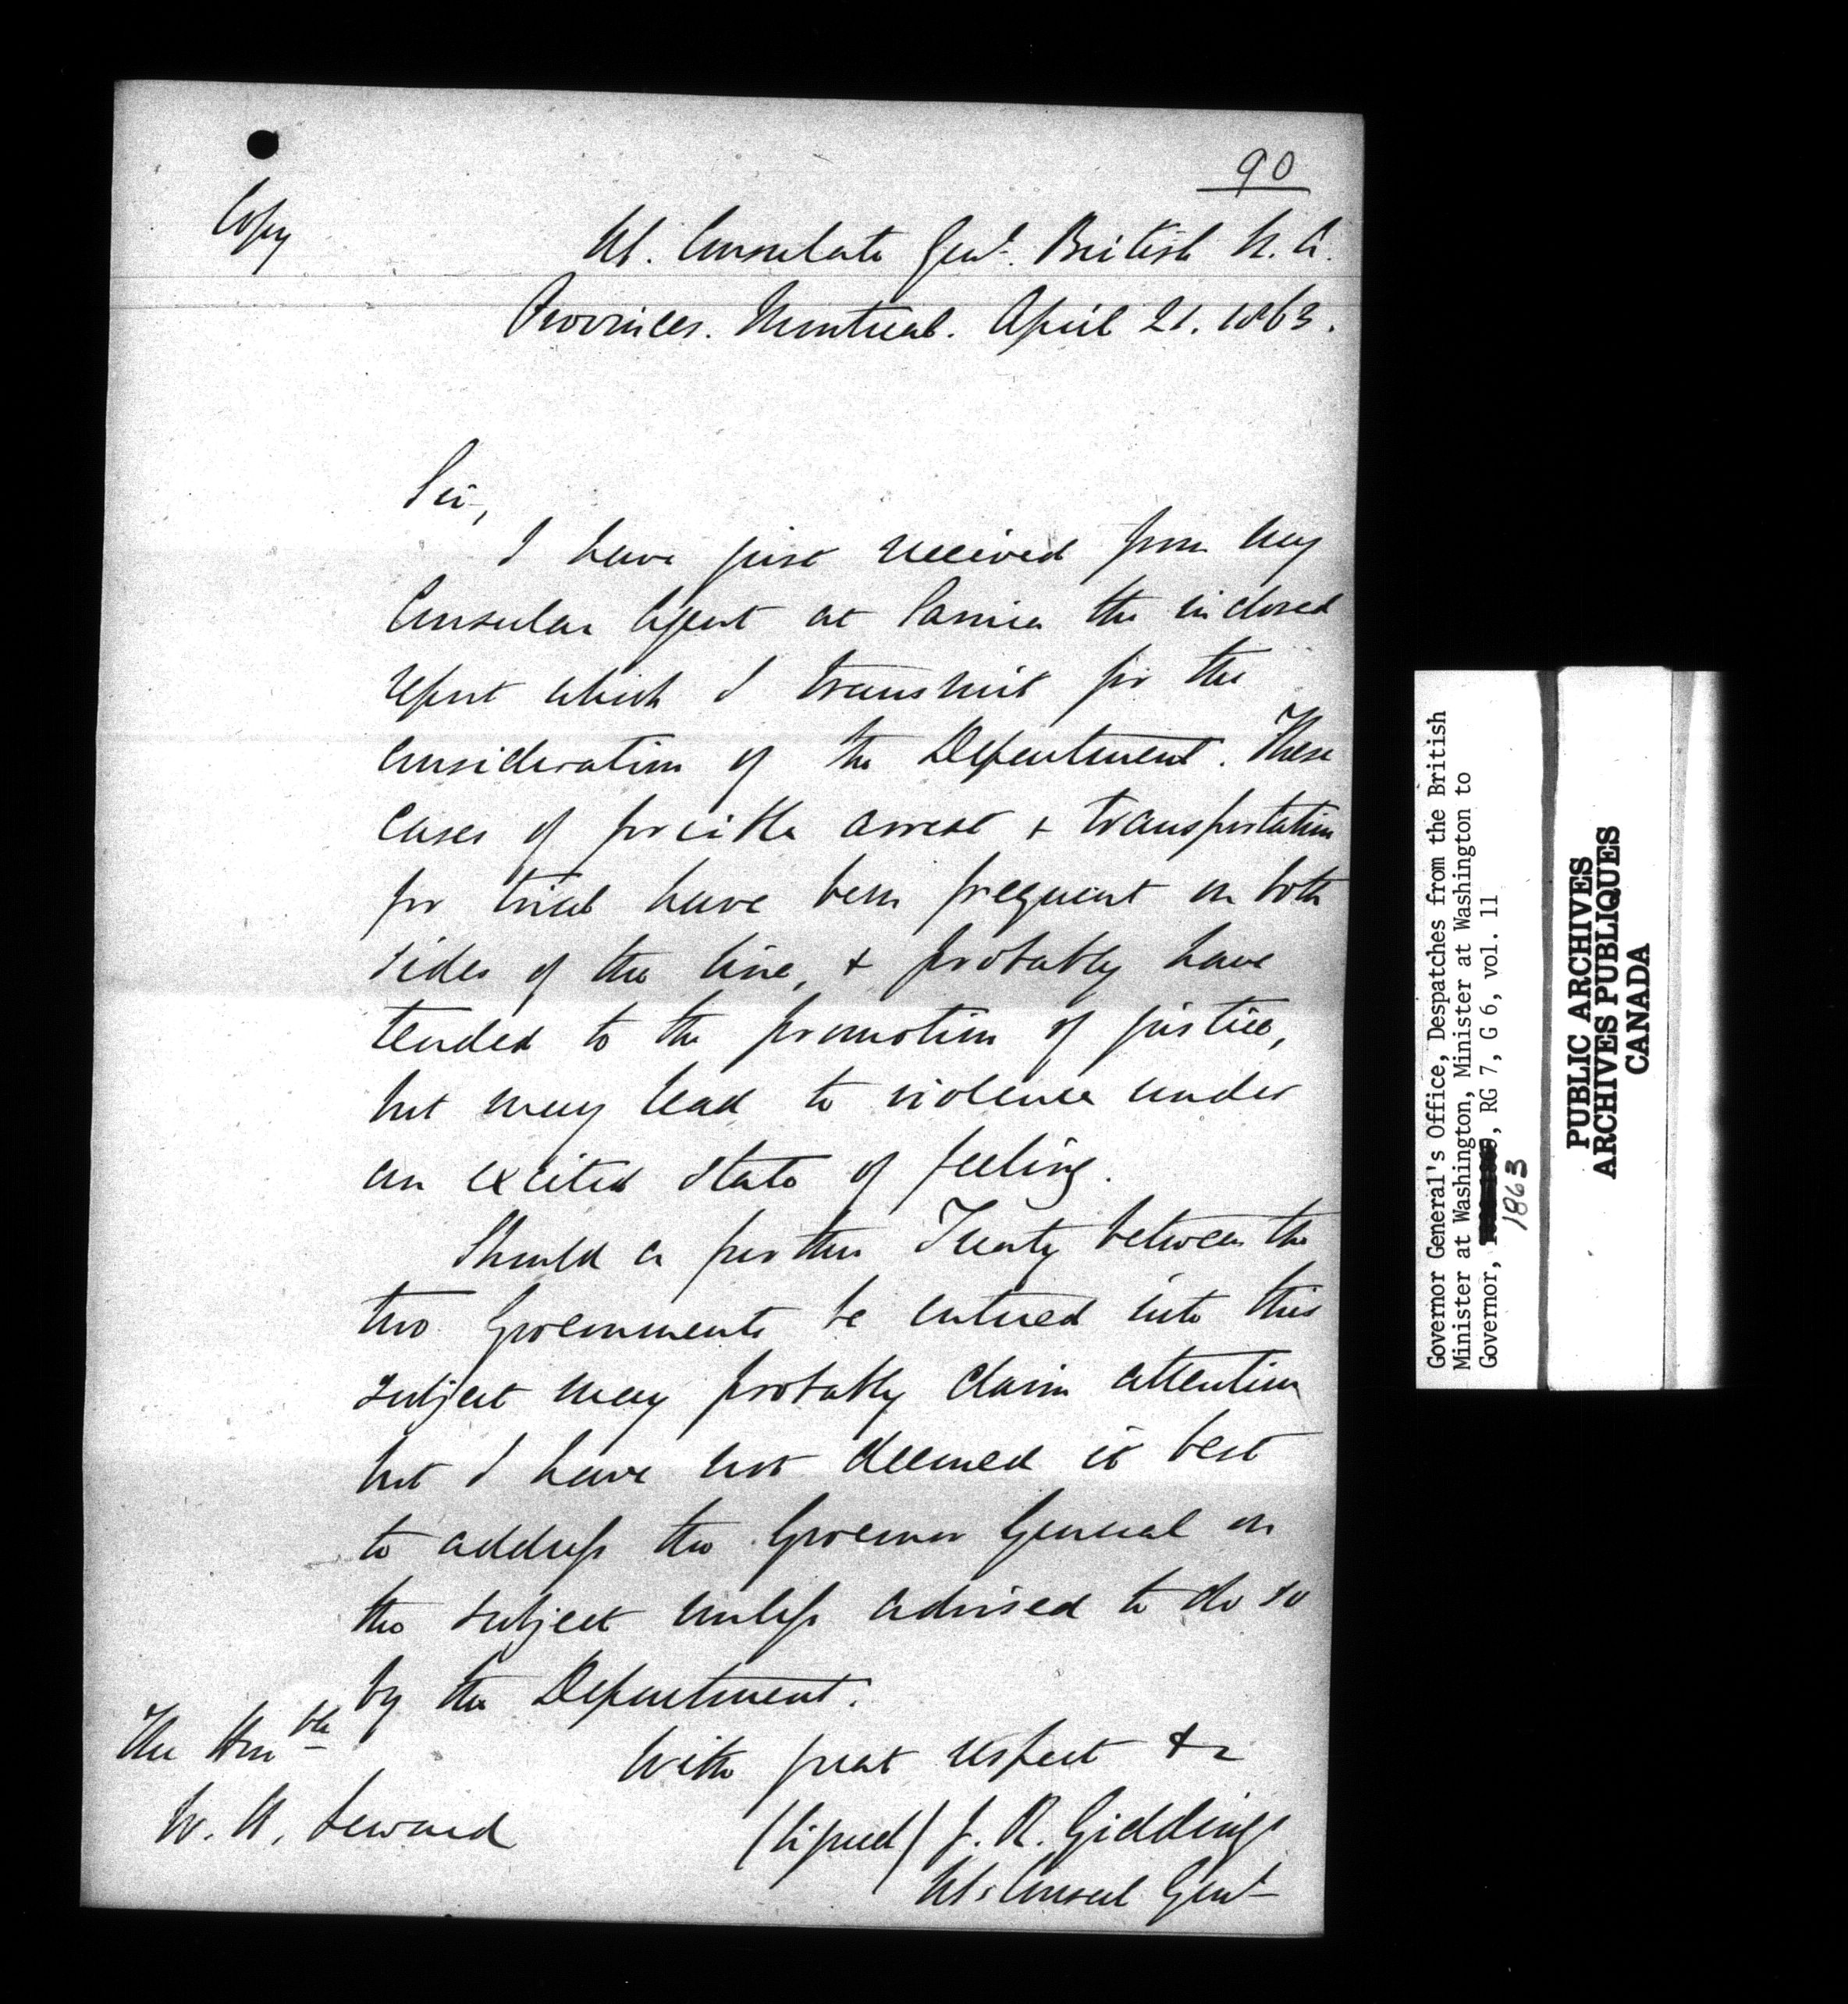 90
Copy
US. Consulate Genl. British N. A.
Provinces. Montreal. April 21. 1863.
Sir,
I have just received from my
Consular Agent at Sarnia the inclosed
report which I transmit for the
consideration of the Department. These
cases of forcible arrest & transportation
for trial have been frequent on both
sides of the line, & probably have
tended to the promotion of justice,
but may lead to violence under
an excited state of feeling.
Should a further Treaty between the
two Governments be entered into this
subject may probably claim attention
but I have not deemed it best
to address the Governor General on
the subject unless advised to do so
by the Department.
With great respect &c
(Signed) J. R. Giddings
US. Consul Genl
The Honble
W. H. Seward
Governor General's Office, Despatches from the British
Minister at Washington, Minister at Washington to
Governor, RG 7, G 6, vol. 11
1863
PUBLIC ARCHIVES
ARCHIVES PUBLIQUES
CANADA